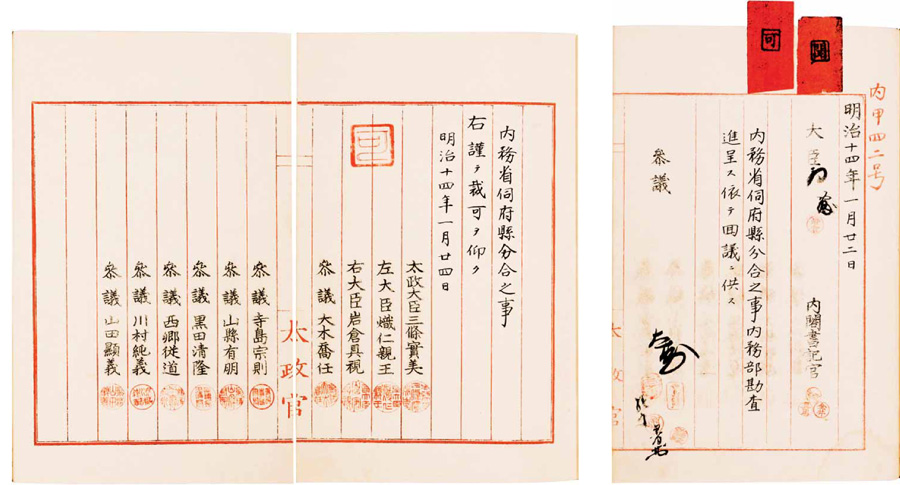 内甲四二号
明治十四年一月廿二日
大臣
内閣書記官
内務省伺府縣分合之事内務部勘査
進呈ス依テ回議ニ供ス
參議
可
太政官
内務省伺府縣分合之事
右謹テ裁可ヲ仰ク
可
明治十四年一月廿四日
太政大臣三條實美
左大臣熾仁親王
右大臣岩倉具視
參議 大木喬任
太政官
參議 寺島宗則
參議 山縣有朋
參議 黒田清隆
參議 西郷従道
參議 川村純義
參議 山田顯義